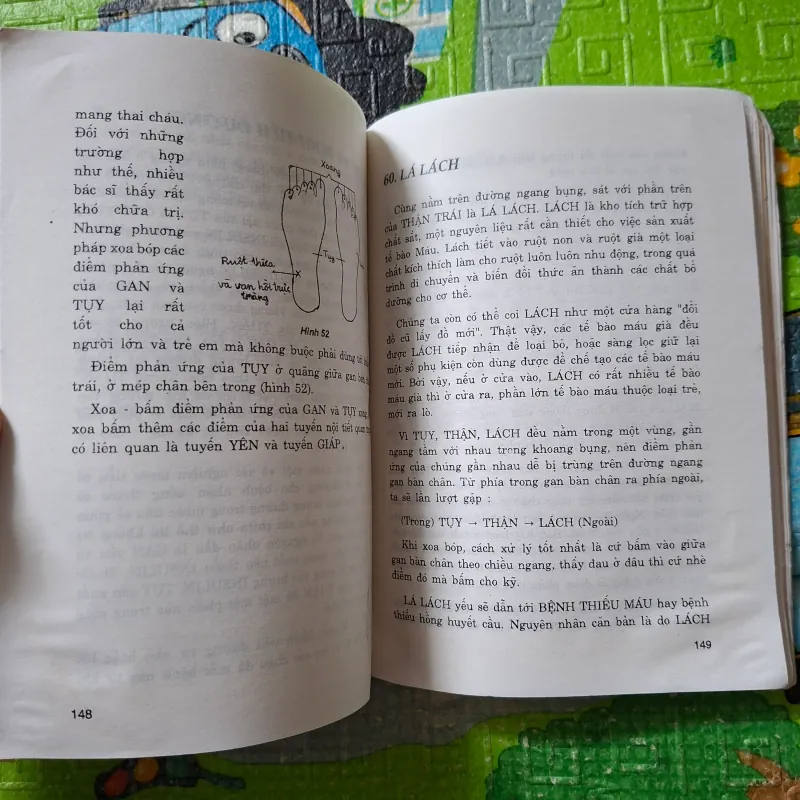 mang thai cháu.
Đối với những
trường hợp
như thế, nhiều
bác sĩ thấy rất
khó chữa trị.
Nhưng phương
pháp xoa bóp các
điểm phản ứng
của GAN và
TỤY lại rất
tốt cho cả
người lớn và trẻ em mà không buộc phải dùng
Điểm phản ứng của TỤY ở quãng giữa gan bàn
trái, ở mép chân bên trong (hình 52).
Xoa - bấm điểm phản ứng của GAN và TỤY
xoa bấm thêm các điểm của hai tuyến nội tiết quan
có liên quan là tuyến YÊN và tuyến GIÁP.
Xoang
Tụy
Ruột thừa
và van hồi trực
tràng
Hình 52
148
60. LÁ LÁCH
Cùng nằm trên đường ngang bụng, sát với phần trên
của THẬN TRÁI là LÁ LÁCH. LÁCH là kho tích trữ hợp
chất sắt, một nguyên liệu rất cần thiết cho việc sản xuất
tế bào Máu. Lách tiết vào ruột non và ruột già một loại
chất kích thích làm cho ruột luôn luôn nhu động, trong quá
trình di chuyển và biến đổi thức ăn thành các chất bổ
dưỡng cho cơ thể.
Chúng ta còn có thể coi LÁCH như một cửa hàng "đổi
đồ cũ lấy đồ mới". Thật vậy, các tế bào máu già đều
được LÁCH tiếp nhận để loại bỏ, hoặc sàng lọc giữ lại
một số phụ kiện còn dùng được để chế tạo các tế bào máu
mới. Bởi vậy, nếu ở cửa vào, LÁCH có rất nhiều tế bào
máu già thì ở cửa ra, phần lớn tế bào máu thuộc loại trẻ,
mới ra lò.
Vì TỤY, THẬN, LÁCH đều nằm trong một vùng, gần
ngang tầm với nhau trong khoang bụng, nên điểm phản
ứng của chúng gần nhau dễ bị trùng trên đường ngang
gan bàn chân. Từ phía trong gan bàn chân ra phía ngoài,
ta sẽ lần lượt gặp :
(Trong) TỤY → THẬN → LÁCH (Ngoài)
Khi xoa bóp, cách xử lý tốt nhất là cứ bấm vào giữa
gan bàn chân theo chiều ngang, thấy đau ở đâu thì cứ nhè
điểm đó mà bấm cho kỹ.
LÁ LÁCH yếu sẽ dẫn tới BỆNH THIẾU MÁU hay bệnh
thiếu hồng huyết cầu. Nguyên nhân căn bản là do LÁCH
149